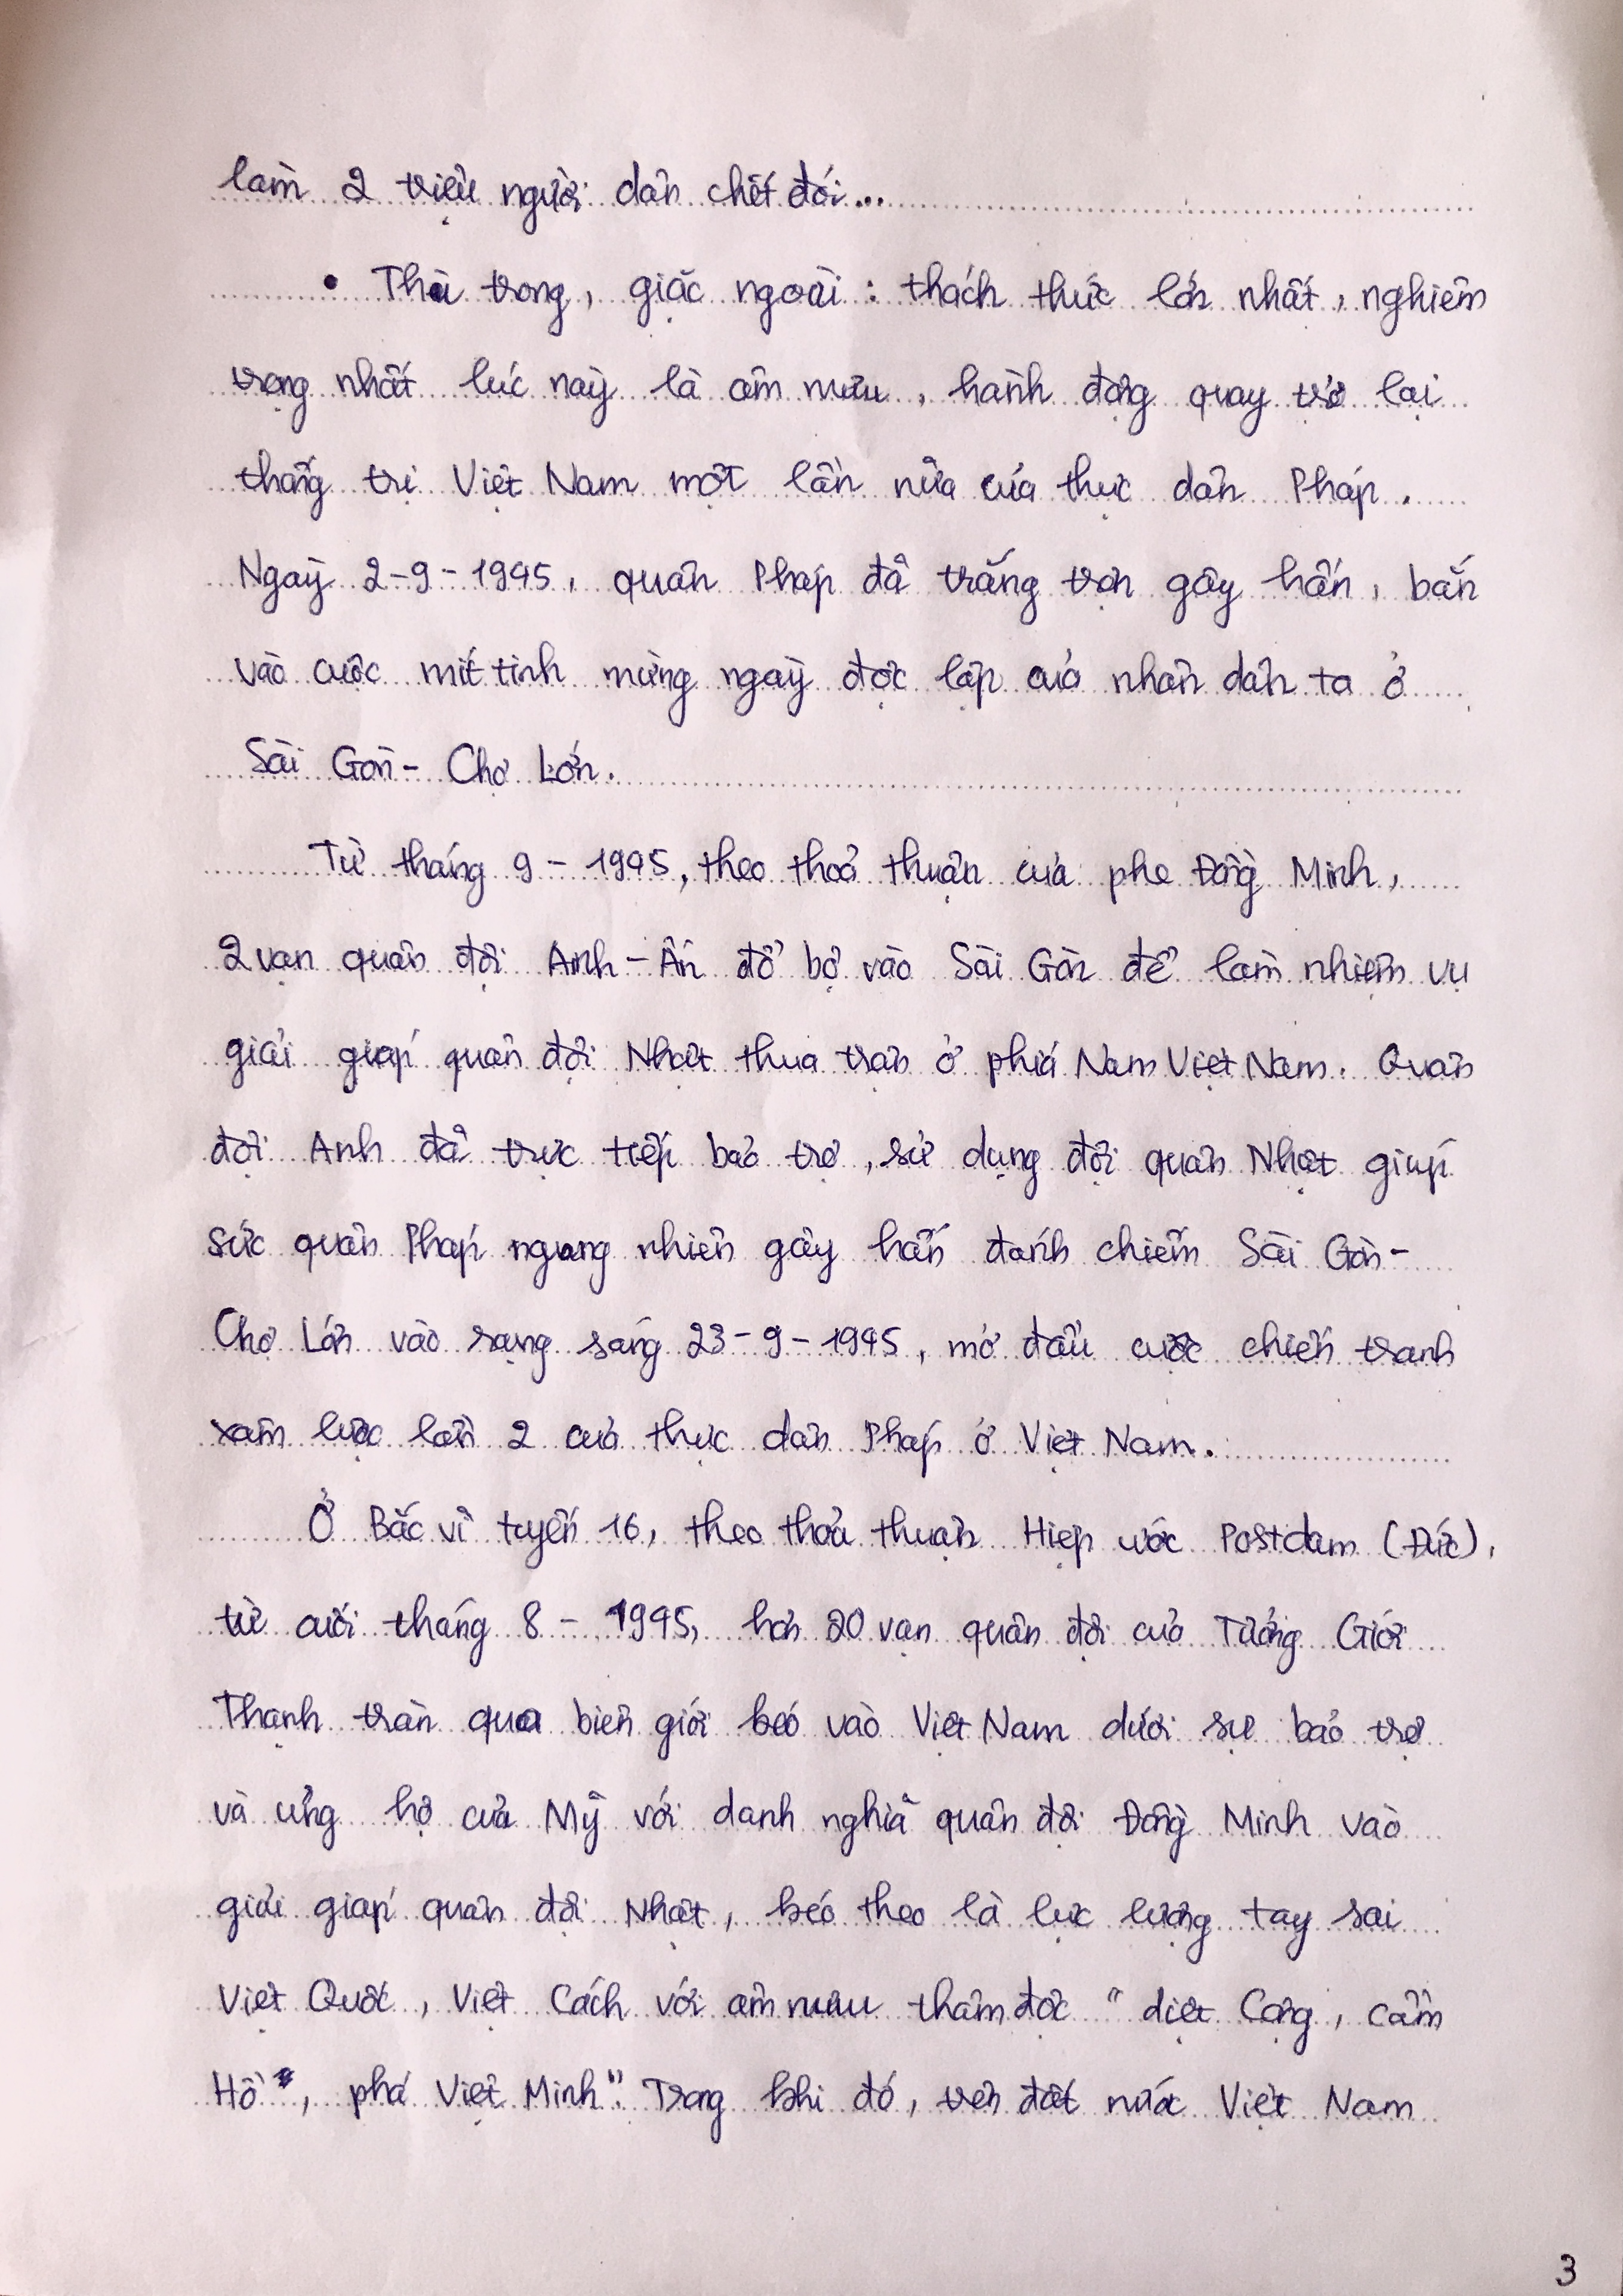 làm 2 triệu người dân chết đói...
• Thù trong, giặc ngoài : thách thức lớn nhất, nghiêm
trọng nhất lúc này là âm mưu, hành động quay trở lại
thống trị Việt Nam một lần nữa của thực dân Pháp.
Ngày 2-9-1945, quân Pháp đã trắng trợn gây hấn, bắn
vào cuộc mít tinh mừng ngày độc lập của nhân dân ta ở
Sài Gòn - Chợ Lớn.
Từ tháng 9-1945, theo thoả thuận của phe Đồng Minh,
2 vạn quân đội Anh - Ấn đổ bộ vào Sài Gòn để làm nhiệm vụ
giải giáp quân đội Nhật thua trận ở phía Nam Việt Nam. Quân
đội Anh đã trực tiếp bảo trợ, sử dụng đội quân Nhật giúp
sức quân Pháp ngang nhiên gây hấn đánh chiếm Sài Gòn -
Chợ Lớn vào rạng sáng 23-9-1945, mở đầu cuộc chiến tranh
xâm lược lần 2 của thực dân Pháp ở Việt Nam.
Ở Bắc vĩ tuyến 16, theo thoả thuận Hiệp ước Postdam (Đức),
từ cuối tháng 8-1945, hơn 20 vạn quân đội của Tưởng Giới
Thạnh tràn qua biên giới kéo vào Việt Nam dưới sự bảo trợ
và ủng hộ của Mỹ với danh nghĩa quân đội Đồng Minh vào
giải giáp quân đội Nhật, kéo theo là lực lượng tay sai
Việt Quốc, Việt Cách với âm mưu thâm độc "diệt Cộng, cầm
Hồ, phá Việt Minh". Trong khi đó, trên đất nước Việt Nam
3